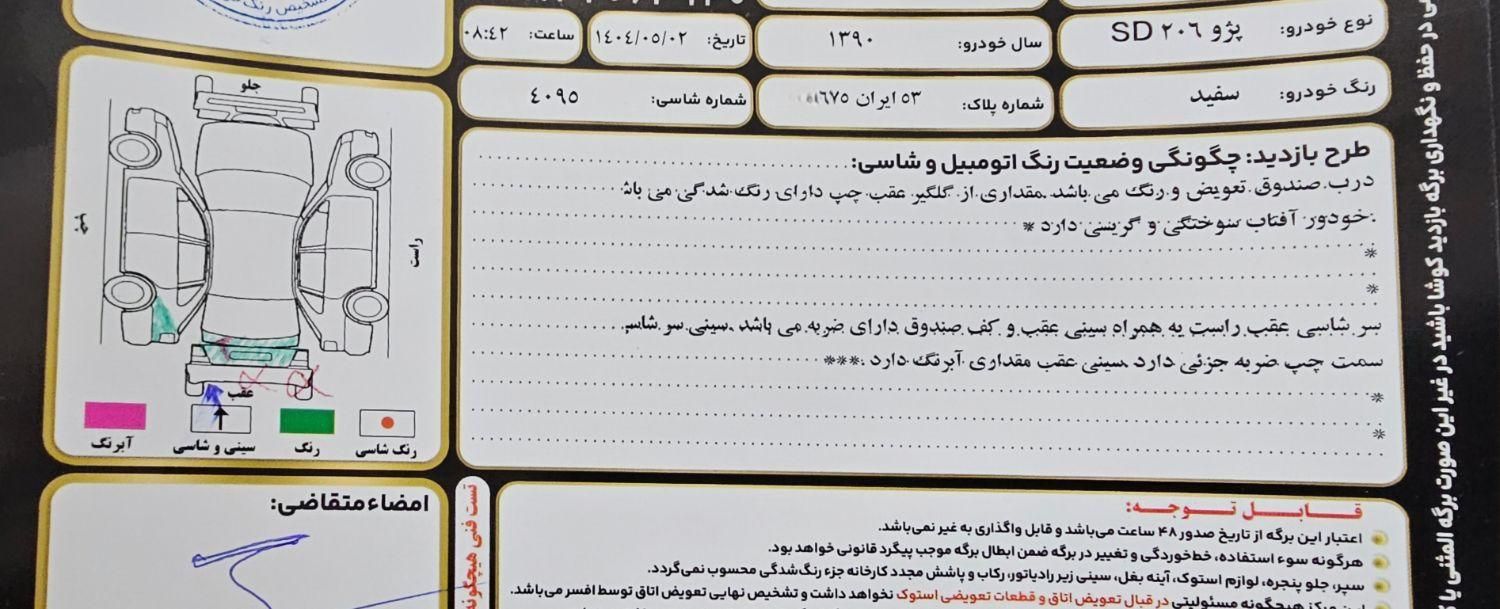 تشخیص رنگ
نوع خودرو: پژو ۲۰۶ SD
سال خودرو: ۱۳۹۰
تاریخ: ۱٤۰٤/۰۵/۰۲
ساعت: ۰۸:٤۲
رنگ خودرو: سفید
شماره پلاک: ۵۳ ایران ۶۷۵
شماره شاسی: ٤۰۹۵
طرح بازدید: چگونگی وضعیت رنگ اتومبیل و شاسی:
درب صندوق تعویض و رنگ می باشد مقداری از گلگیر عقب چپ دارای رنگ شدگی می باشد
.خودور آفتاب سوختگی و گریسی دارد *
*
*
سر شاسی عقب راست به همراه سینی عقب و کف صندوق دارای ضربه می باشد .سینی سر شاسی
سمت چپ ضربه جزئی دارد .سینی عقب مقداری آبرنگ دارد .***
*
*
جلو
راست
عقب
رنگ شاسی
رنگ
سینی و شاسی
آبرنگ
امضاء متقاضی:
تست فنی هیچگونه
قابل توجه:
اعتبار این برگه از تاریخ صدور ۴۸ ساعت می‌باشد و قابل واگذاری به غیر نمی‌باشد.
هرگونه سوء استفاده، خط‌خوردگی و تغییر در برگه ضمن ابطال برگه موجب پیگرد قانونی خواهد بود.
سپر، جلو پنجره، لوازم استوک، آینه بغل، سینی زیر رادیاتور، رکاب و پاشش مجدد کارخانه جزء رنگ‌شدگی محسوب نمی‌گردد.
مرکز هیچگونه مسئولیتی در قبال تعویض اتاق و قطعات تعویضی استوک نخواهد داشت و تشخیص نهایی تعویض اتاق توسط افسر می‌باشد.
در حفظ و نگهداری برگه بازدید کوشا باشید در غیر این صورت برگه المثنی با